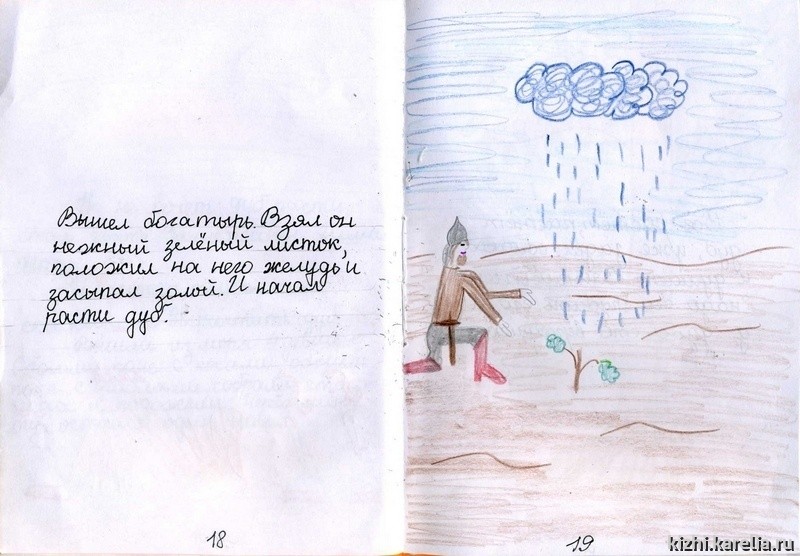 Вышел богатырь. Взял он
нежный зелёный листок,
положил на него желудь и
засыпал золой. И начал
расти дуб.
18
19
kizhi.karelia.ru